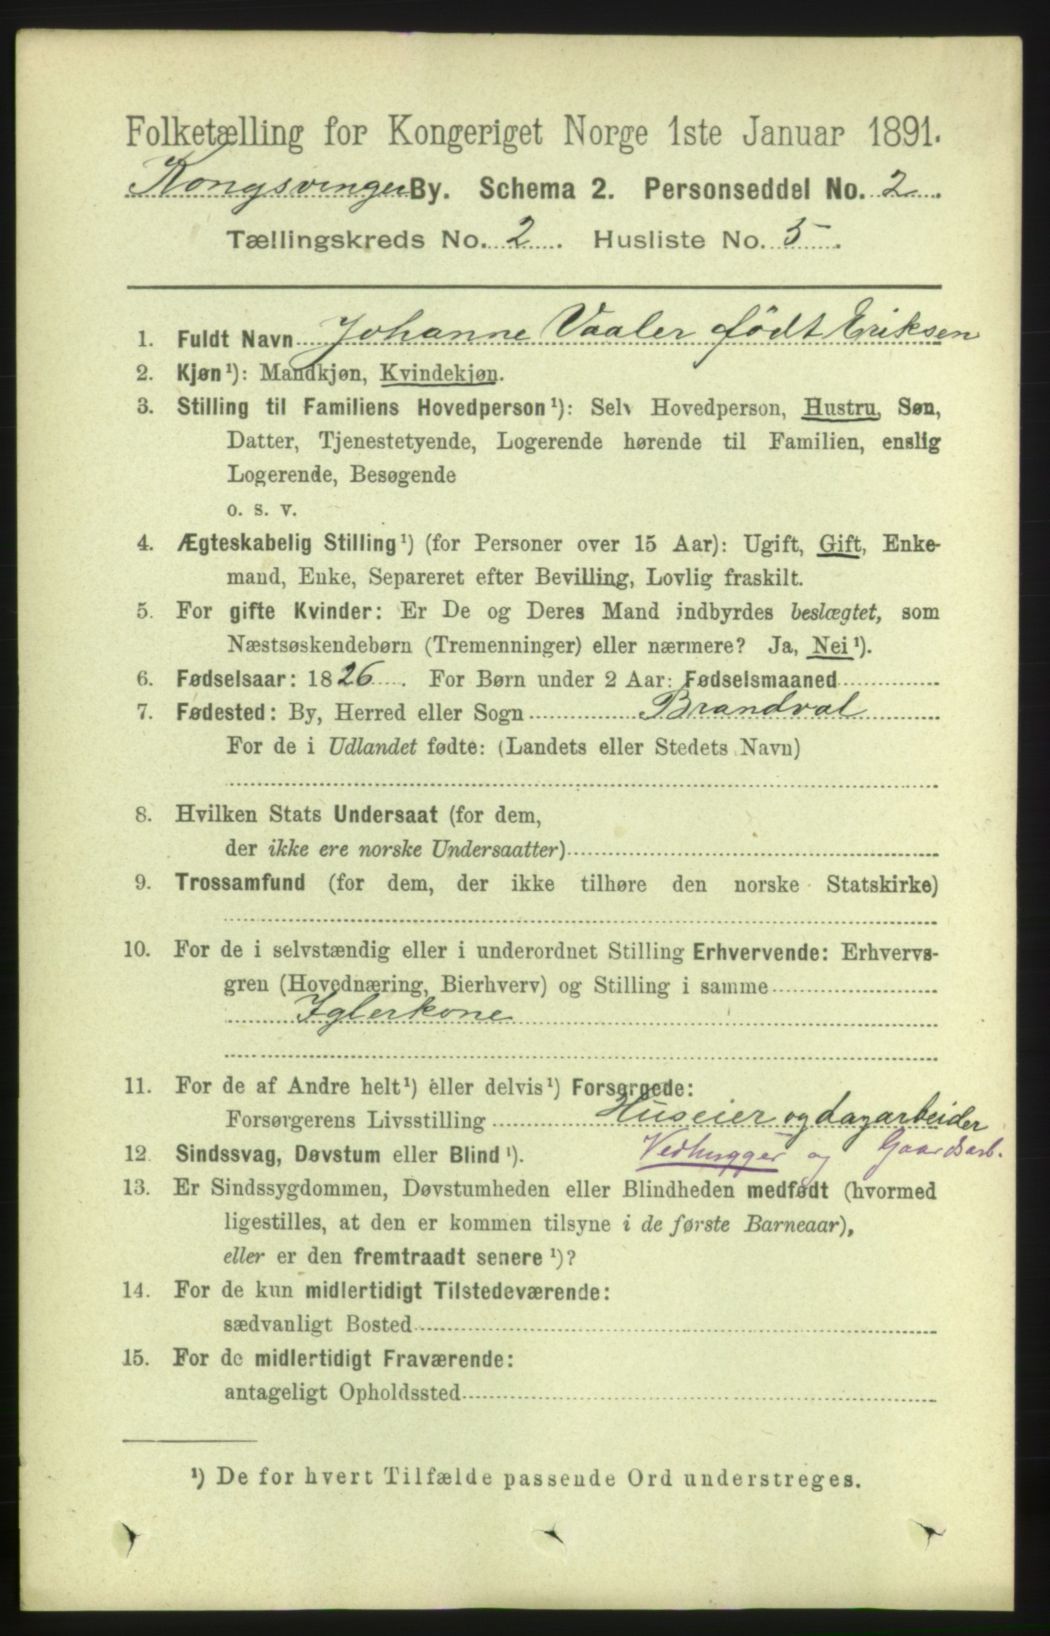 Folketælling for Kongeriget Norge 1ste Januar 1891.
Kongsvinger By. Schema 2. Personseddel No. 2.
Tællingskreds No. 2. Husliste No. 5.
1. Fuldt Navn Johanne Vaaler født Eriksen
2. Kjøn¹): Mandkjøn, Kvindekjøn.
3. Stilling til Familiens Hovedperson¹): Selv Hovedperson, Hustru, Søn,
Datter, Tjenestetyende, Logerende hørende til Familien, enslig
Logerende, Besøgende
o. s. v.
4. Ægteskabelig Stilling¹) (for Personer over 15 Aar): Ugift, Gift, Enke-
mand, Enke, Separeret efter Bevilling, Lovlig fraskilt.
5. For gifte Kvinder: Er De og Deres Mand indbyrdes beslægtet, som
Næstsøskendebørn (Tremenninger) eller nærmere? Ja, Nei¹).
6. Fødselsaar: 1826. For Børn under 2 Aar: Fødselsmaaned
7. Fødested: By, Herred eller Sogn Brandval
For de i Udlandet fødte: (Landets eller Stedets Navn)
8. Hvilken Stats Undersaat (for dem,
der ikke ere norske Undersaatter)
9. Trossamfund (for dem, der ikke tilhøre den norske Statskirke)
10. For de i selvstændig eller i underordnet Stilling Erhvervende: Erhvervs-
gren (Hovednæring, Bierhverv) og Stilling i samme
Iglerkone
11. For de af Andre helt¹) eller delvis¹) Forsørgede:
Forsørgerens Livsstilling Huseier og dagarbeider
12. Sindssvag, Døvstum eller Blind¹). Vedhugger og Gaardsarb.
13. Er Sindssygdommen, Døvstumheden eller Blindheden medfødt (hvormed
ligestilles, at den er kommen tilsyne i de første Barneaar),
eller er den fremtraadt senere¹)?
14. For de kun midlertidigt Tilstedeværende:
sædvanligt Bosted
15. For de midlertidigt Fraværende:
antageligt Opholdssted
¹) De for hvert Tilfælde passende Ord understreges.